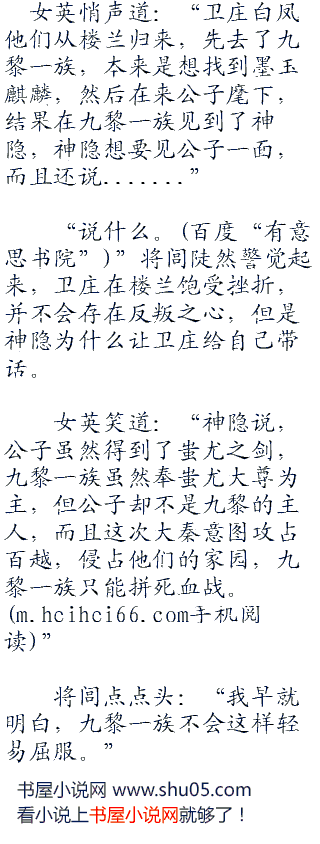 女英悄声道：“卫庄白凤
他们从楼兰归来，先去了九
黎一族，本来是想找到墨玉
麒麟，然后在来公子麾下，
结果在九黎一族见到了神
隐，神隐想要见公子一面，
而且还说.......”
“说什么。(百度“有意
思书院”)”将闾陡然警觉起
来，卫庄在楼兰饱受挫折，
并不会存在反叛之心，但是
神隐为什么让卫庄给自己带
话。
女英笑道：“神隐说，
公子虽然得到了蚩尤之剑，
九黎一族虽然奉蚩尤大尊为
主，但公子却不是九黎的主
人，而且这次大秦意图攻占
百越，侵占他们的家园，九
黎一族只能拼死血战。
(m.hcihci66.com手机阅
读)”
将闾点点头：“我早就
明白，九黎一族不会这样轻
易屈服。”
书屋小说网 www.shu05.com
看小说上书屋小说网就够了！